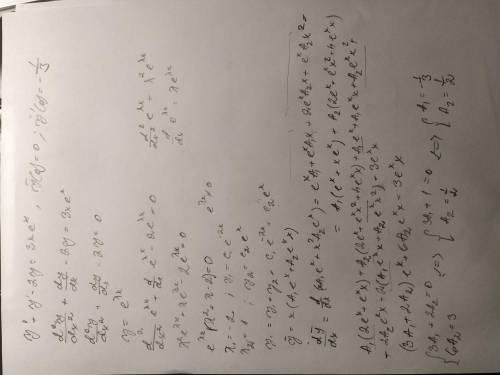 y'' + y' - 2y = 3xe^x , y(0) = 0 ; y'(0) = -1/3
d²y/dx² + dy/dx - 2y = 3xe^x
d²y/dx² + dy/dx - 2y = 0
y = e^{λx}
d²/dx² e^{λx} + d/dx e^{λx} - 2e^{λx} = 0
d²/dx² e^{λx} = λ² e^{λx}
d/dx e^{λx} = λe^{λx}
λ² e^{λx} + λe^{λx} - 2e^{λx} = 0
e^{λx}(λ² + λ - 2) = 0
e^{λx} ≠ 0
λ₁ = -2 ; y₁ = c₁e^{-2x}
λ₂ = 1 ; y₂ = c₂e^x
y = y₁ + y₂ = c₁e^{-2x} + c₂e^x
y = x(A₁e^x + A₂e^x x)
dy/dx = d/dx (xA₁e^x + x²A₂e^x) = e^xA₁ + e^xA₁x + 2e^xA₂x + e^xA₂x² =
= A₁(e^x + xe^x) + A₂(2e^x + e^x x² + 4e^x x)
A₁(2e^x + e^x x) + A₂(2e^x + e^x x² + 4e^x x) + A₁e^x + A₁e^x x + A₂e^x x² +
+ 2A₂e^x x - 2(A₁e^x x + A₂e^x x²) = 3e^x x
(3A₁ + 2A₂)e^x + 6A₂e^x x = 3e^x x
{ 3A₁ + 2A₂ = 0 <=> { 3A₁ + 1 = 0 <=> { A₁ = -1/3
{ 6A₂ = 3 { A₂ = 1/2 { A₂ = 1/2